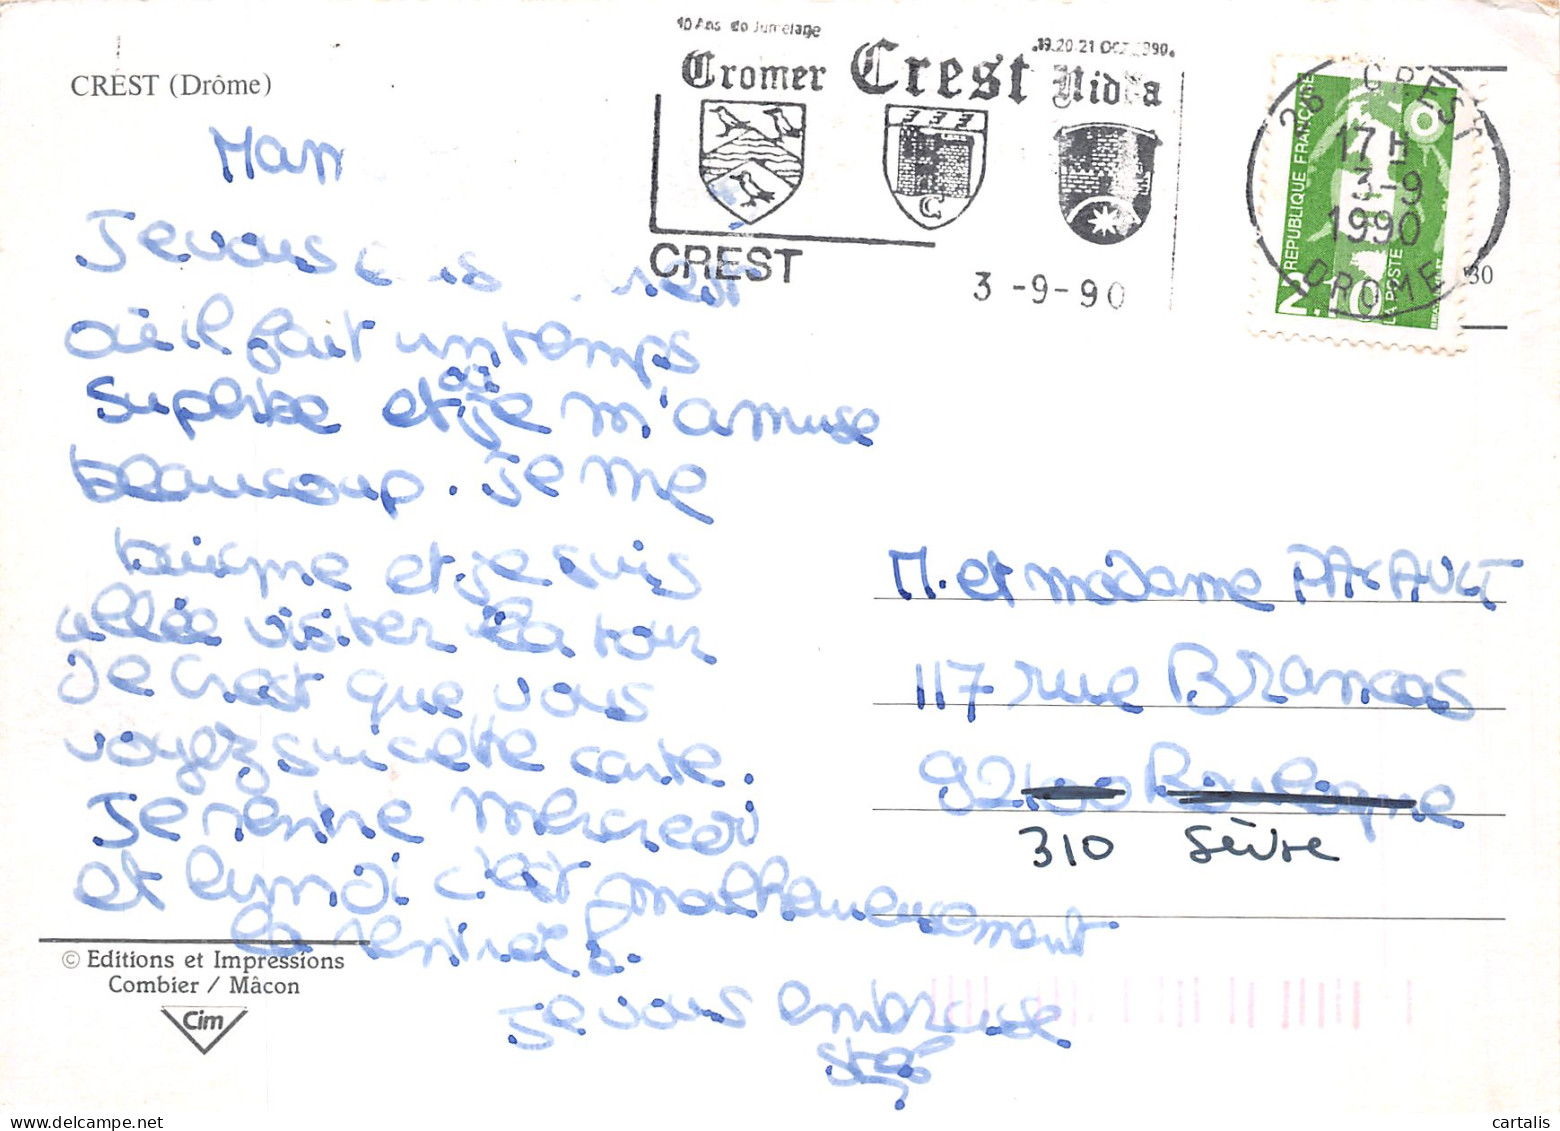 CREST (Drôme)
10 Ans de Jumelage
19.20.21 OCT.1990.
Cromer Crest Nidda
CREST
3-9-90
26 CREST
17 H
3-9
1990
DROME
REPUBLIQUE FRANÇAISE
2.10
LA POSTE
30
Je vous
où il fait un temps
superbe et où je m'amuse
beaucoup. Je me
baigne et je suis
allée visiter la tour
de Crest que vous
voyez sur cette carte.
Je rentre Mercredi
et lundi c'est malheureusement
la rentrée
Je vous embrasse
Stef
M. et madame
117 rue Brancas
92100 Boulogne
310 Sèvre
© Editions et Impressions
Combier / Mâcon
Cim